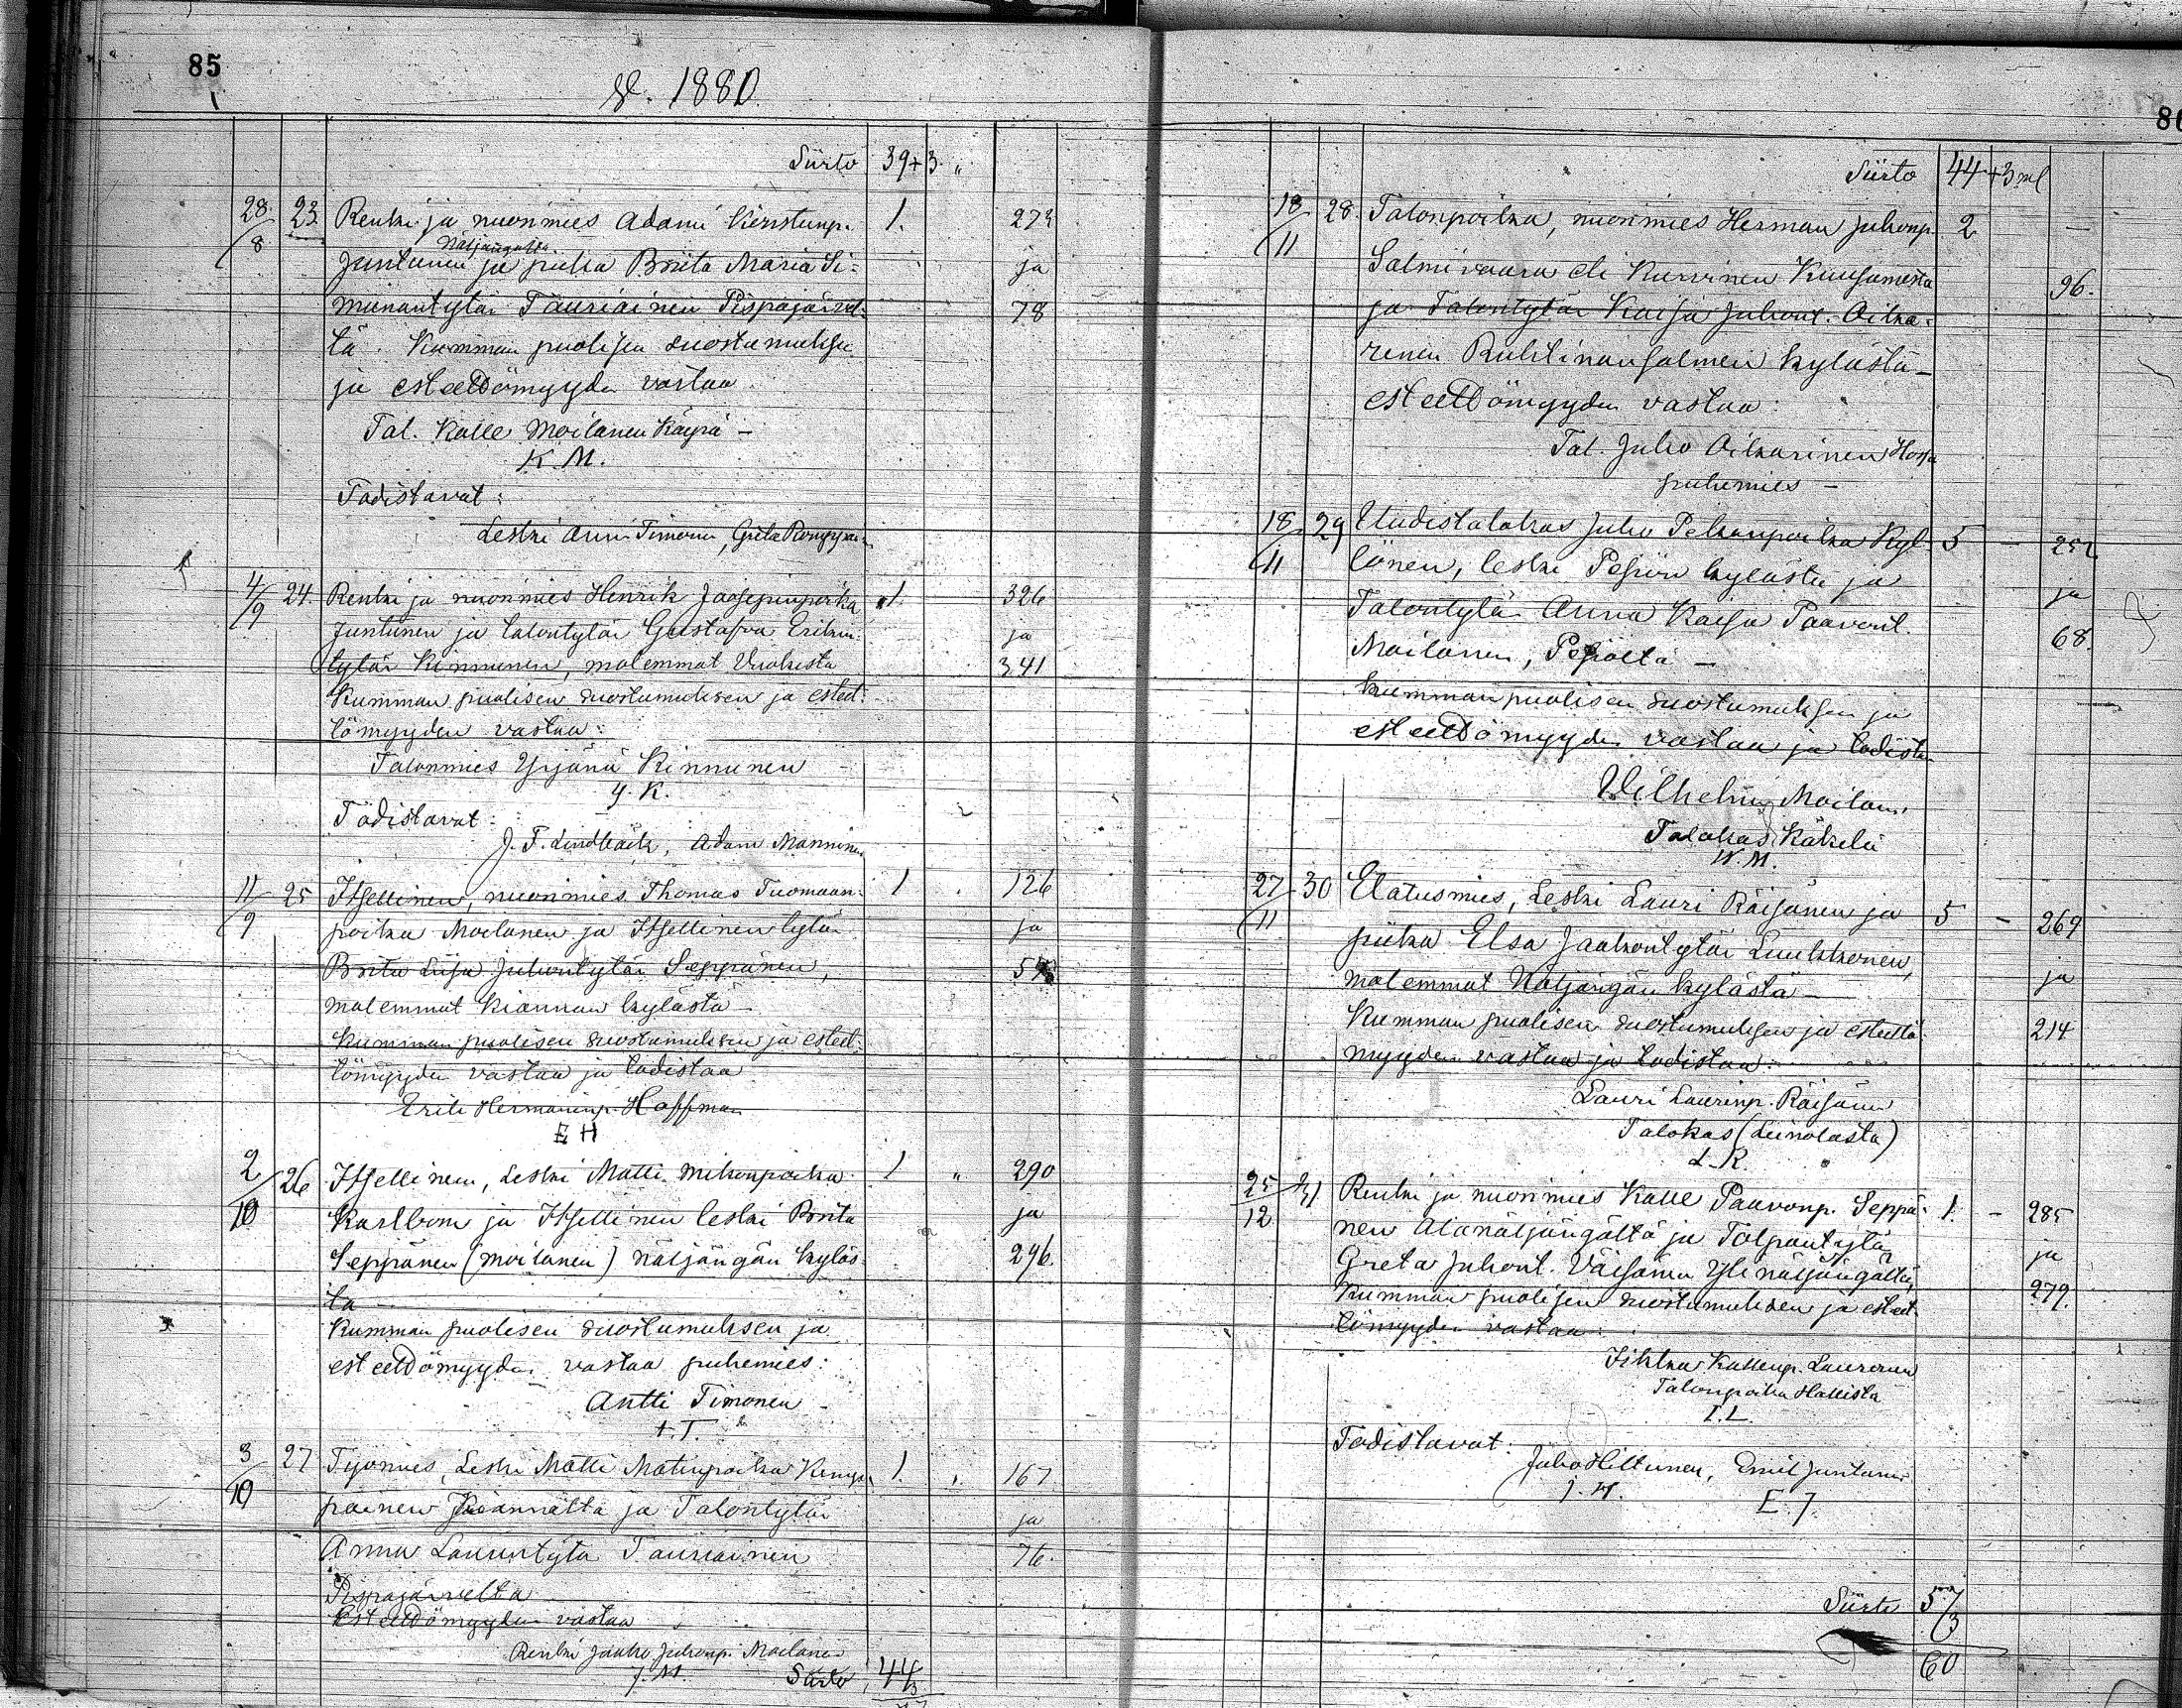 85
v. 1880.
Siirto 39+3 "
28/8 23. Renki ja nuorimies Adami Kirstunp. 1. 273
Näljängältä
Juntunen ja piika Brita Maria Si= ja
munantytär Tauriainen Pispajärvel= 78
tä. Kumman puolisen suostumuksen
ja esteettömyyden vastaa
Tal. Kalle Moilanen Käpä –
K. M.
Todistavat:
Leski Anni Timonen, Greta
4/9 24. Renki ja nuorimies Henrik Joosepinpoika 1. 326
Juntunen ja talontytär Gustafva Erikin= ja
tytär Kinnunen, molemmat Vuokista 341
Kumman puolisen suostumuksen ja esteet=
tömyyden vastaa:
Talonmies Yrjänä Kinnunen –
Y. K.
Todistavat:
J. F. Lindbäck, Adam Manninen
11/9 25 Itsellinen, nuorimies Thomas Tuomaan= 1 . 126
poika Moilanen ja Itsellinen tytär ja
Brita Liisa Juhontytär Seppänen,
molemmat Kiannan kylästä –
Kumman puolisen suostumuksen ja esteet=
tömyyden vastaa ja todistaa
Erik Hermaninp. Hoffman
E H
2/10 26 Itsellinen, Leski Matti Mikonpoika 1 " 290
Karlbom ja Itsellinen leski Brita ja
Seppänen (Moilanen) Näljängän kyläs= 296.
tä –
Kumman puolisen suostumuksen ja
esteettömyyden vastaa puhemies:
Antti Timonen –
A. T.
3/10 27 Työmies, Leski Matti Matinpoika Kemp= 1. " 167
painen Kiannalta ja Talontytär ja
Anna Laurintytä Tauriainen 76.
Pispajärveltä
Esteettömyyden vastaa
Renki Jaako Juhonp. Moilanen
J. M.
Siirto 44/3
Siirto 44+3 ml
18/11 28. Talonpoika, nuorimies Herman Juhonp. 2 –
Salmivaara eli Kurvinen Kuusamosta 96.
ja Talontytär Kaisa Juhont. Oika=
rinen Ruhtinansalmen kylästä –
esteettömyyden vastaa:
Tal. Juho Oikarinen Hossa
puhemies –
18/11 29 Uudistalokas Juho Pekanpoika Kyl= 5 – 252
lönen, leski Pesiön kylästä ja ja
Talontytär Anna Kaisa Paavont. 68.
Moilanen, Pesiöltä –
Kumman puolisen suostumuksen ja
esteettömyyden vastaa ja todistaa
Vilhelm Moilanen
Talokas Käkelä
W. M.
27/11 30 Elatusmies, Leski Lauri Räisänen ja 5 – 269
piika Elsa Jaakontytär Luukkonen, ja
molemmat Näljängän kylästä – 214
Kumman puolisen suostumuksen ja esteettö=
myyden vastaa ja todistaa:
Lauri Laurinp. Räisänen
Talokas (Leinolasta)
L. R.
25/12 31 Renki ja nuorimies Kalle Paavonp. Seppä= 1. – 285
nen Alanäljängältä ja Torpantytär ja
Greta Juhont. Väisänen Ylinäljängältä, 279.
Kumman puolisen suostumuksen ja esteet=
tömyyden vastaa:
Iikka Kallenp. Laurinen
Talonpoika Hallista
I. L.
Todistavat:
Juho Hiltunen, Emil Juntunen
J. H. E. J.
Siirto 57/3
60